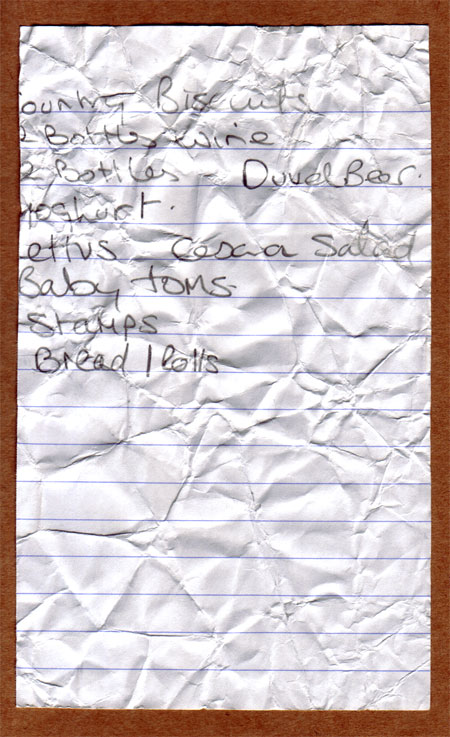 ountry Biscuits
2 Bottles wine
2 Bottles - Duvel Beer.
Yoghurt.
ettus Cesar Salad
Baby toms
Stamps
Bread / Rolls